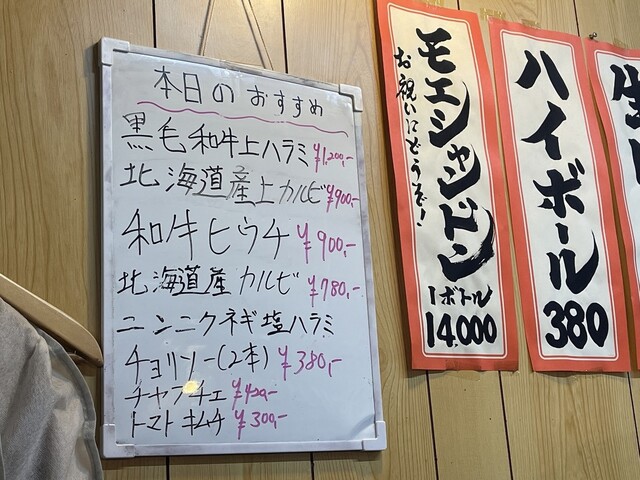 本日のおすすめ
黒毛和牛上ハラミ ¥1,200,-
北海道産上カルビ ¥900,-
和牛ヒウチ ¥900,-
北海道産カルビ ¥780,-
ニンニクネギ塩ハラミ
チョリソー(2本) ¥380,-
チャプチェ ¥420,-
トマトキムチ ¥300,-
モエシャンドン
お祝いにどうぞ!
1ボトル
14,000
ハイボール
380
生